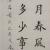 月春風
多少事